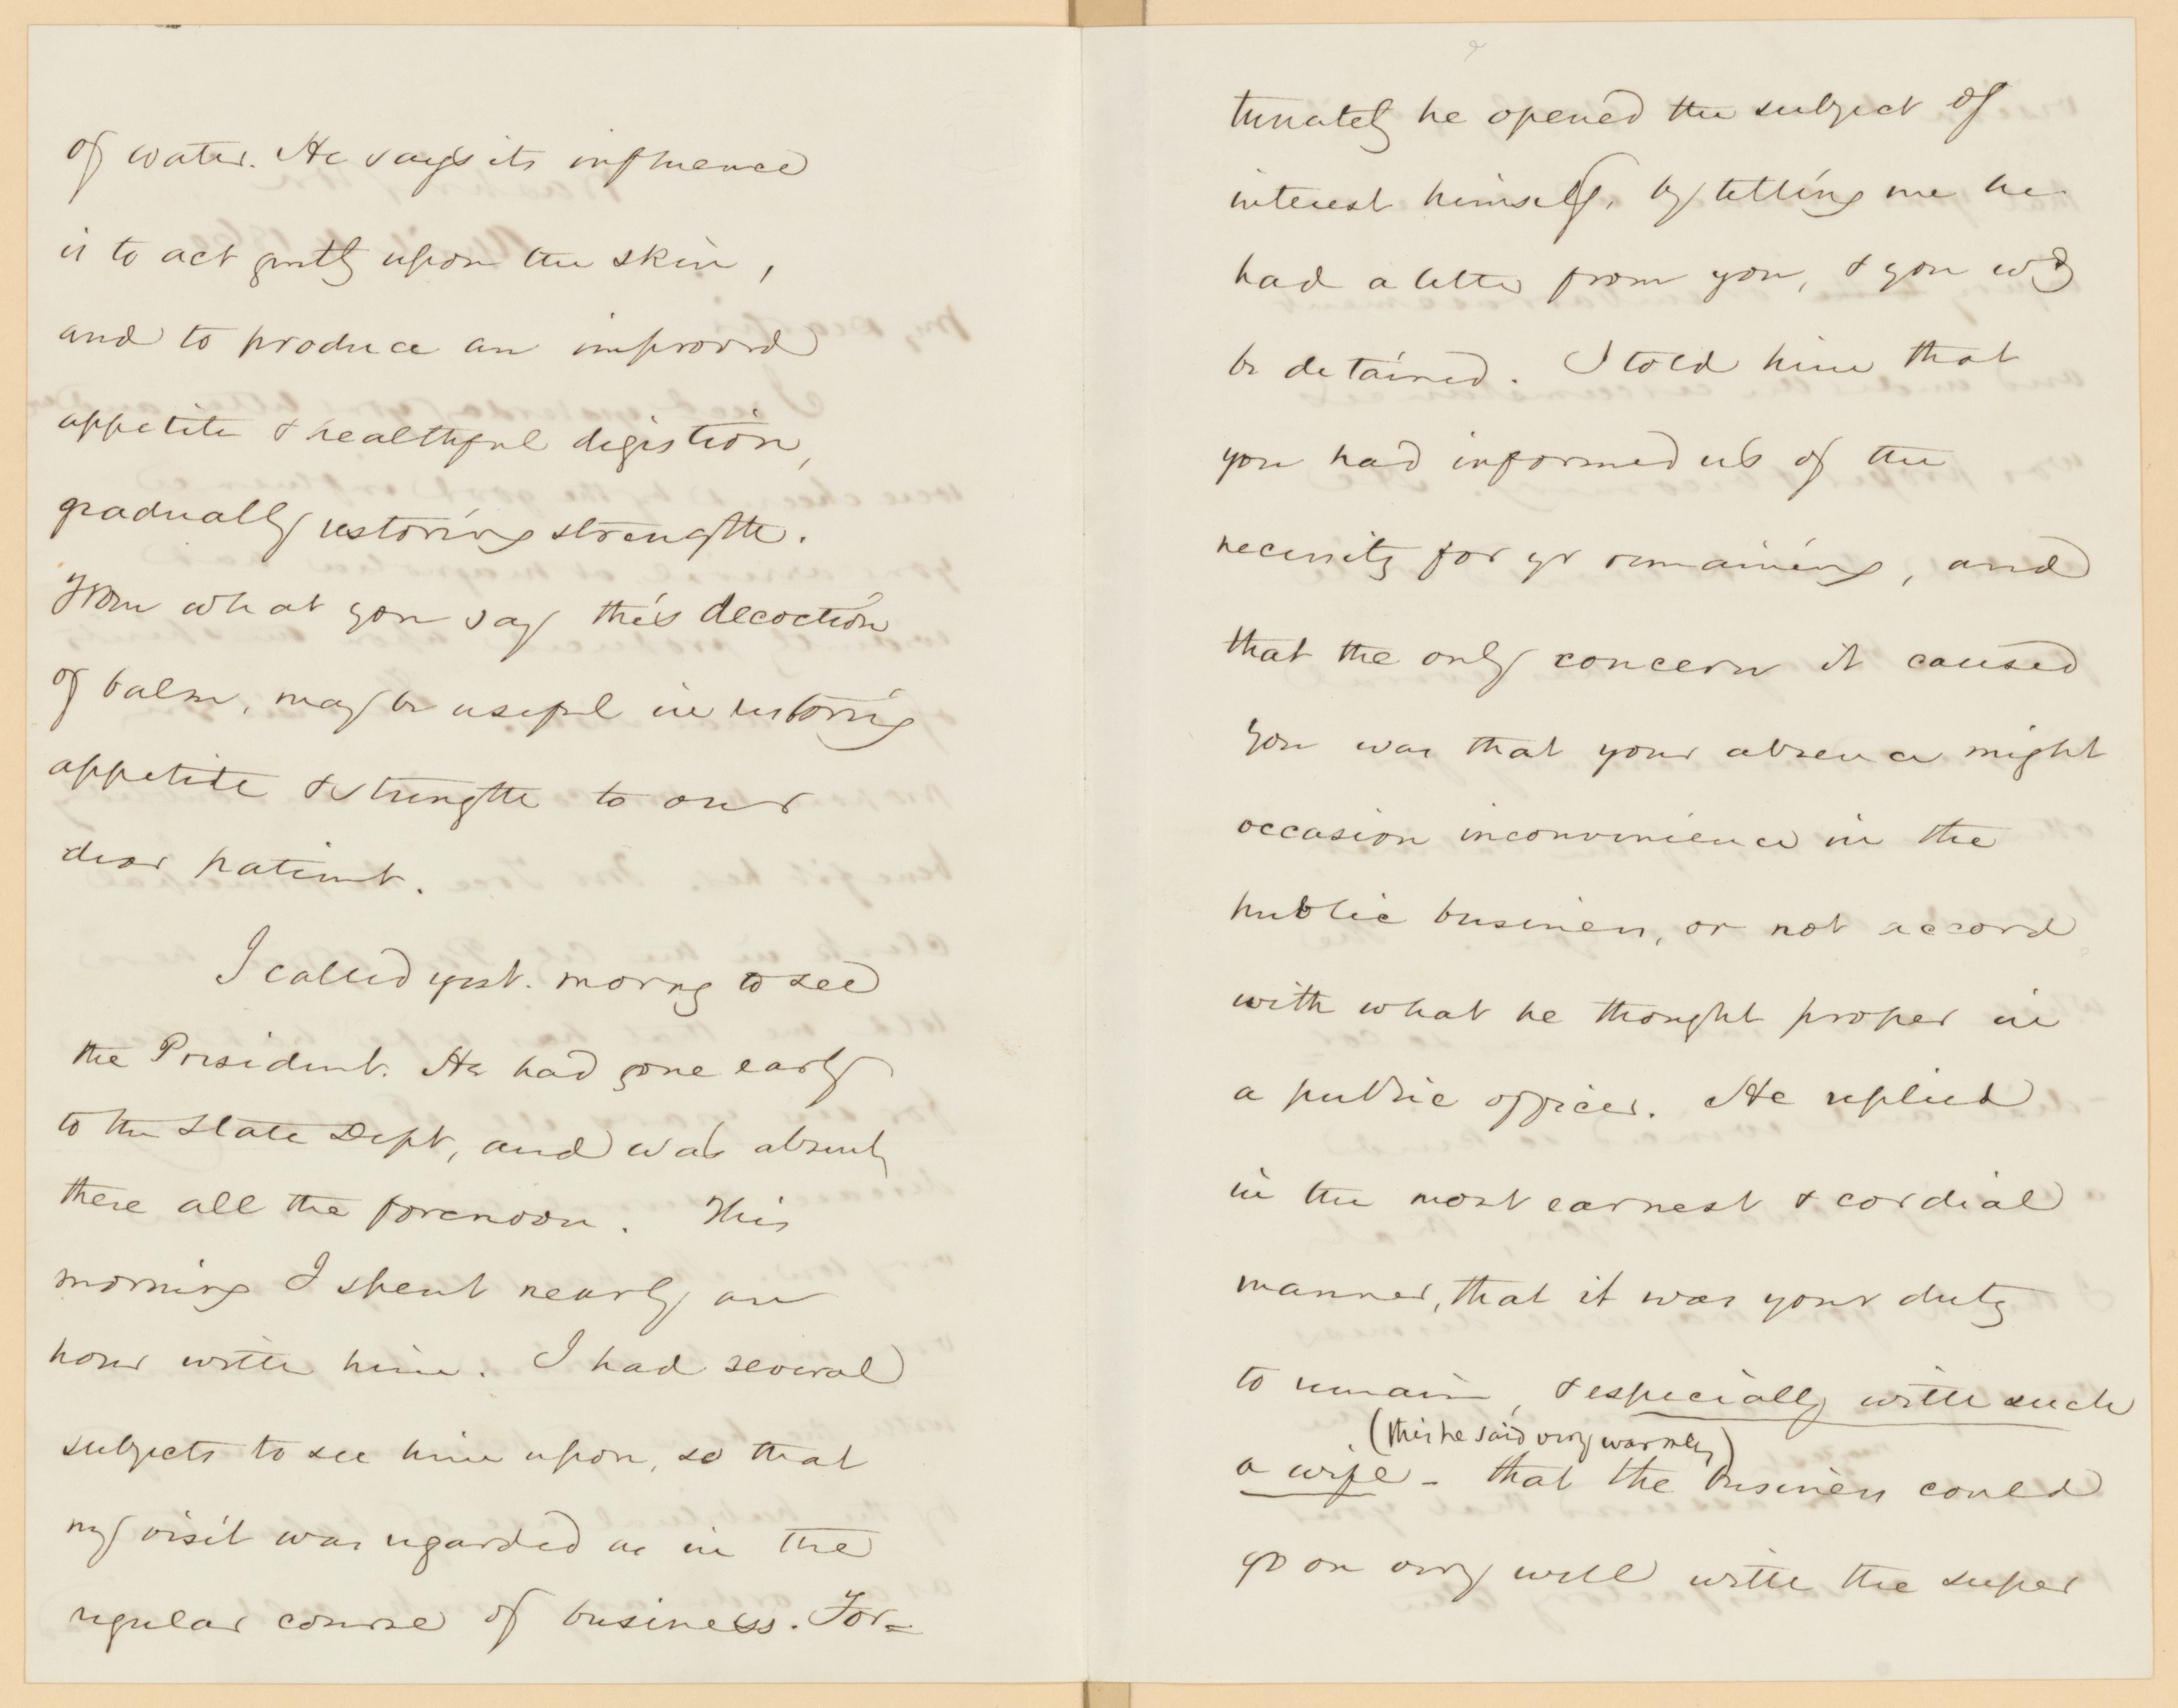 of water. He says its influence
is to act gently upon the skin,
and to produce an improved
appetite & healthful digestion,
gradually restoring strength.
From what you say this decoction
of balm, may be useful in restoring
appetite & strength to our
dear patient.
I called yest. morng to see
the President. He had gone early
to the State Dept, and was absent
there all the forenoon. This
morning I spent nearly an
hour with him. I had several
subjects to see him upon, so that
my visit was regarded as in the
regular course of business. For=
tunately he opened the subject of
interest himself, by telling me he
had a letter from you, & you wd
be detained. I told him that
you had informed us of the
necessity for yr remaining, and
that the only concern it caused
you was that your absence might
occasion inconvenience in the
public business, or not accord
with what he thought proper in
a public officer. He replied
in the most earnest & cordial
manner, that it was your duty
to remain, & especially with such
(this he said very warmly)
a wife - that the business could
go on very well with the super